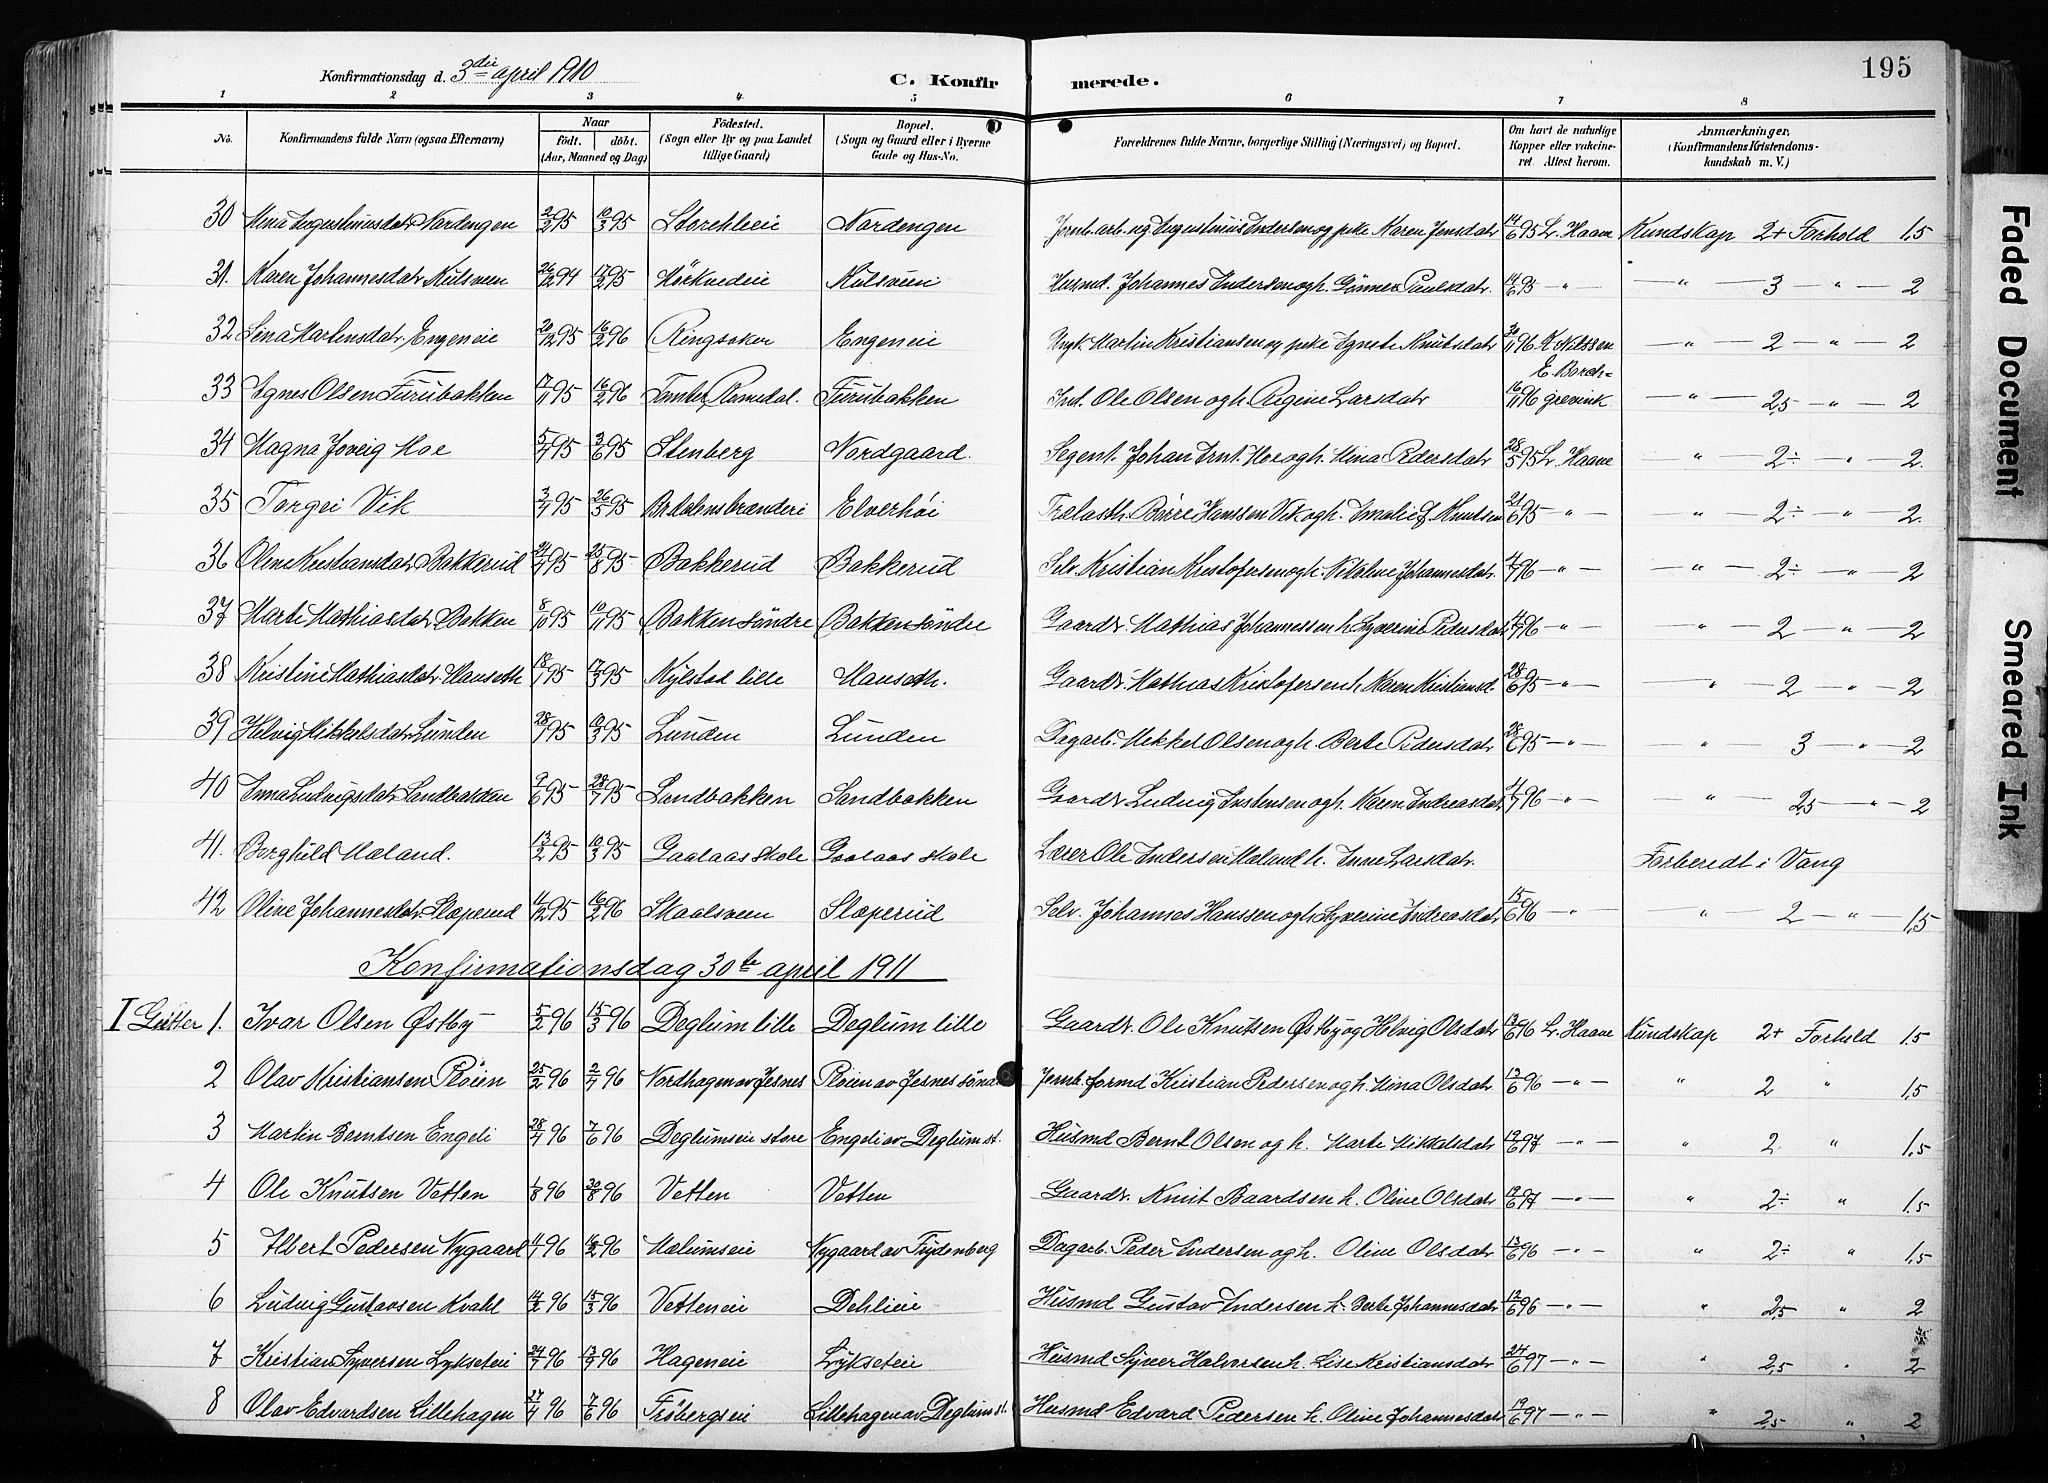 195
Konfirmationsdag d. 3die april 1910
C. Konfirmerede.
1 2 3 4 5 6 7 8
No. Konfirmandens fulde Navn (ogsaa Efternavn) Naar født. døbt. (Aar, Maaned og Dag) Fødested. (Sogn eller By og paa Landet tillige Gaard) Bopæl. (Sogn og Gaard eller i Byerne Gade og Hus-No. Forældrenes fulde Navne, borgerlige Stilling (Næringsvei) og Bopæl. Om havt de naturlige Kopper eller vakcineret Attest herom. Anmærkninger, (Konfirmandens Kristendomskundskab m. V.)
30 Mina Augustinusdatr Nordengen 2/2 95 10/3 95 Nordengen Jernb.arb. ug Augustinus Andersen og pike Maren Jensdatr 14/6 95 Lr. Haave Kundskap 2+ Forhold 1,5
31. Karen Johannesdatr Kulsveen 26/12 94 17/2 95 Mørkvedeie Kulsveen Husmd. Johannes Andersen og h. Gunner Paulsdatr. 14/6 95 — " — — " — 3 — " — 2
32 Lina Martinsdatr. Engeneie 20/12 95 16/2 96 Ringsaker Engeneie Ungk. Martin Kristiansen og pike Agnete Knutsdatr 20/11 96 K. Nilssen — " — 2 — " — 2
33 Agnes Olsen Furubakken 17/11 95 16/2 96 Furubakken Ind. Ole Olsen og h Regine Larsdatr 16/11 96 E. Borchgrevink — " — 2,5 — " — 2
34 Magna Joveig Moe 5/4 95 3/6 95 Stenberg Nordgaard. Segent. Johan Arnt. Moe og h. Mina Pedersdatr 28/5 95 Lr. Haave " — 2÷ — " — 2.
35 Torgei Vik 3/4 95 26/5 95 Br.dalensbrænderi Elverhøi Trælasth. Børre Hanssen Vik og h. Amalie J. Knutsen 21/6 95 — " — — " — 2÷ — " — 2.
36 Oline Kristiansdatr Bakkerud 24/4 95 25/8 95 Bakkerud Bakkerud Selv. Kristian Kristofersen og h. Nikoline Johannesdatr. 4/7 96 — " — — " — 2÷ — " — 2
37 Marte Mathiasdatr. Bakken 8/10 95 10/11 95 Bakken søndre Bakken søndre Gaardr. Mathias Johannessen h. Syverine Pedersdatr 4/7 96 — " — — " — 2 — " — 2
38 Kristine Mathiasdatr. Manseth 18/1 95 17/3 95 Nylstad lille Manseth. Gaardr. Mathias Kristofersen h. Karen Kristiansd. 28/6 95 — " — — " — 2 — " — 2
39 Helvig Mikkelsdatr Lunden 28/1 95 10/3 95 Lunden Lunden Dagarb. Mikkel Olsen og h. Berte Pedersdatr 28/6 95 — " — — " — 3 — " — 2
40 Anna Ludvigsdatr. Sandbakken 9/6 95 28/7 95 Sandbakken Sandbakken Gaardr. Ludvig Austensen og h. Karen Andreasdatr 4/7 96 — " — — " — 2,5 — " — 2
41. Borghild Mæland. 13/2 95 10/3 95 Gaalaas skole Gaalaas skole Lærer Ole Andersen Mæland h. Anne Larsdatr. Forberedt i Vang
42 Oline Johannesdatr. Slæperud 11/12 95 16/2 96 Skaalsveen Slæperud Selv. Johannes Hanssen og h. Syverine Andreasdatr 15/6 96 — " — — " — 2 — " — 1,5
Konfirmationsdag 30te april 1911
I Gutter 1. Ivar Olsen Østby 5/2 96 15/3 96 Deglum lille Deglum lille Gaardr. Ole Knutsen Østby og Helvig Olsdatr 13/6 96 Lr. Haave Kundskap 2+ Forhold 1.5
2 Olav Kristiansen Pløien 25/2 96 2/4 96 Nordhagen av Jesnes Pløien av Jesnes søndr Jernb. formd Kristian Pedersen og h. Mina Olsdatr 13/6 96 — " — " 2 " 1,5
3 Martin Berntsen Engeli 28/4 96 7/6 96 Deglumseie store Engeli av Deglum st. Husmd Bernt Olsen og h. Marte Mikkelsdatr 19/6 97 — " — " 2 " 1,5
4 Ole Knutsen Vetten 1/8 96 30/8 96 Vetten Vetten Gaardr. Knut Baardsen h. Oline Olsdatr 19/6 97 — " — " 2÷ " 1,5
5 Albert Pedersen Nygaard 4/1 96 16/2 96 Mælumseie Nygaard av Frydenberg Dagarb. Peder Andersen og h. Oline Olsdatr 13/6 96 — " — " 2÷ " 1,5
6 Ludvig Gustavsen Kvahl 14/2 96 15/3 96 Vetteneie Dehlieie Husmd Gustav Andersen h. Berte Johannesdatr 13/6 96 — " — " 2,5 " 2
7 Kristian Syversen Lykseteie 24/7 96 13/9 96 Hageneie Lykseteie Husmd Syver Halvorsen h. Lise Kristiansdatr 24/6 97 — " — " 2,5 " 2
8 Olav Edvardsen Lillehagen 27/4 96 7/6 96 Frøbergseie Lillehagen av Deglum st. Husmd Edvard Pedersen h. Oline Johannesdatr 19/6 97 — " — " 2,5 " 2
Faded Document
Smeared Ink